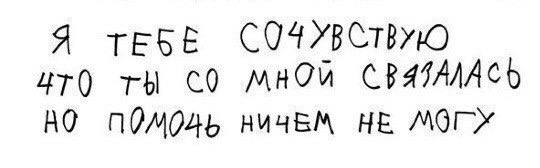 Я ТЕБЕ СОЧУВСТВУЮ
ЧТО ТЫ СО МНОЙ СВЯЗАЛАСЬ
НО ПОМОЧЬ НИЧЕМ НЕ МОГУ